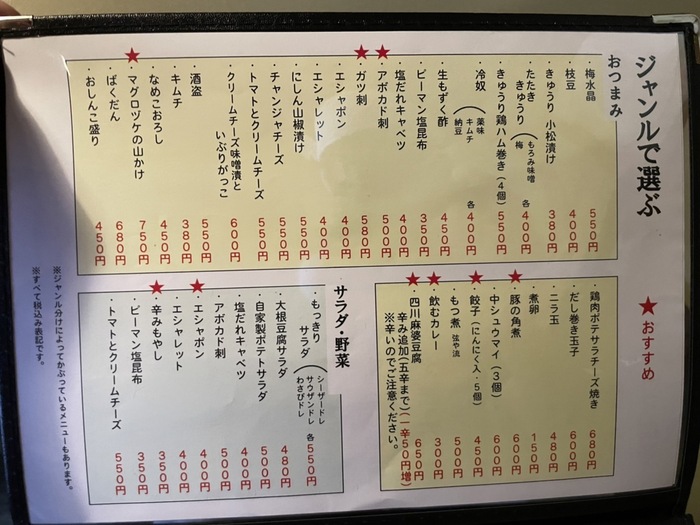 ジャンルで選ぶ
★おすすめ
おつまみ
・梅水晶 550円
・枝豆 400円
・きゅうり 小松漬け 380円
・たたききゅうり(もろみ味噌 梅) 各400円
・きゅうり鶏ハム巻き(4個) 550円
・冷奴(薬味 キムチ 納豆) 各400円
・生もずく酢 450円
・ピーマン塩昆布 350円
・塩だれキャベツ 400円
★・アボカド刺 500円
★・ガツ刺 580円
・エシャポン 400円
・エシャレット 400円
・にしん山椒漬け 550円
・チャンジャチーズ 550円
・トマトとクリームチーズ 550円
・クリームチーズ味噌漬と
いぶりがっこ 600円
・酒盗 550円
・キムチ 380円
・なめこおろし 450円
★・マグロヅケの山かけ 750円
・ばくだん 680円
・おしんこ盛り 450円
・鶏肉ポテサラチーズ焼き 680円
・だし巻き玉子 600円
・ニラ玉 480円
・煮卵 150円
★・豚の角煮 600円
・中シュウマイ(3個) 600円
★・餃子(にんにく入・5個) 450円
・もつ煮 弦や流 500円
★・飲むカレー 300円
★・四川麻婆豆腐 650円
辛み追加(五辛まで)(一辛50円増)
※辛いのでご注意ください。
サラダ・野菜
・もっきりサラダ(シーザードレ サウザンドレ わさびドレ 各550円
・大根豆腐サラダ 480円
・自家製ポテトサラダ 500円
・塩だれキャベツ 400円
・アボカド刺 500円
★・エシャポン 400円
・エシャレット 400円
★・辛みもやし 350円
・ピーマン塩昆布 350円
・トマトとクリームチーズ 550円
※ジャンル分けによってかぶっているメニューもあります。
※すべて税込み表記です。